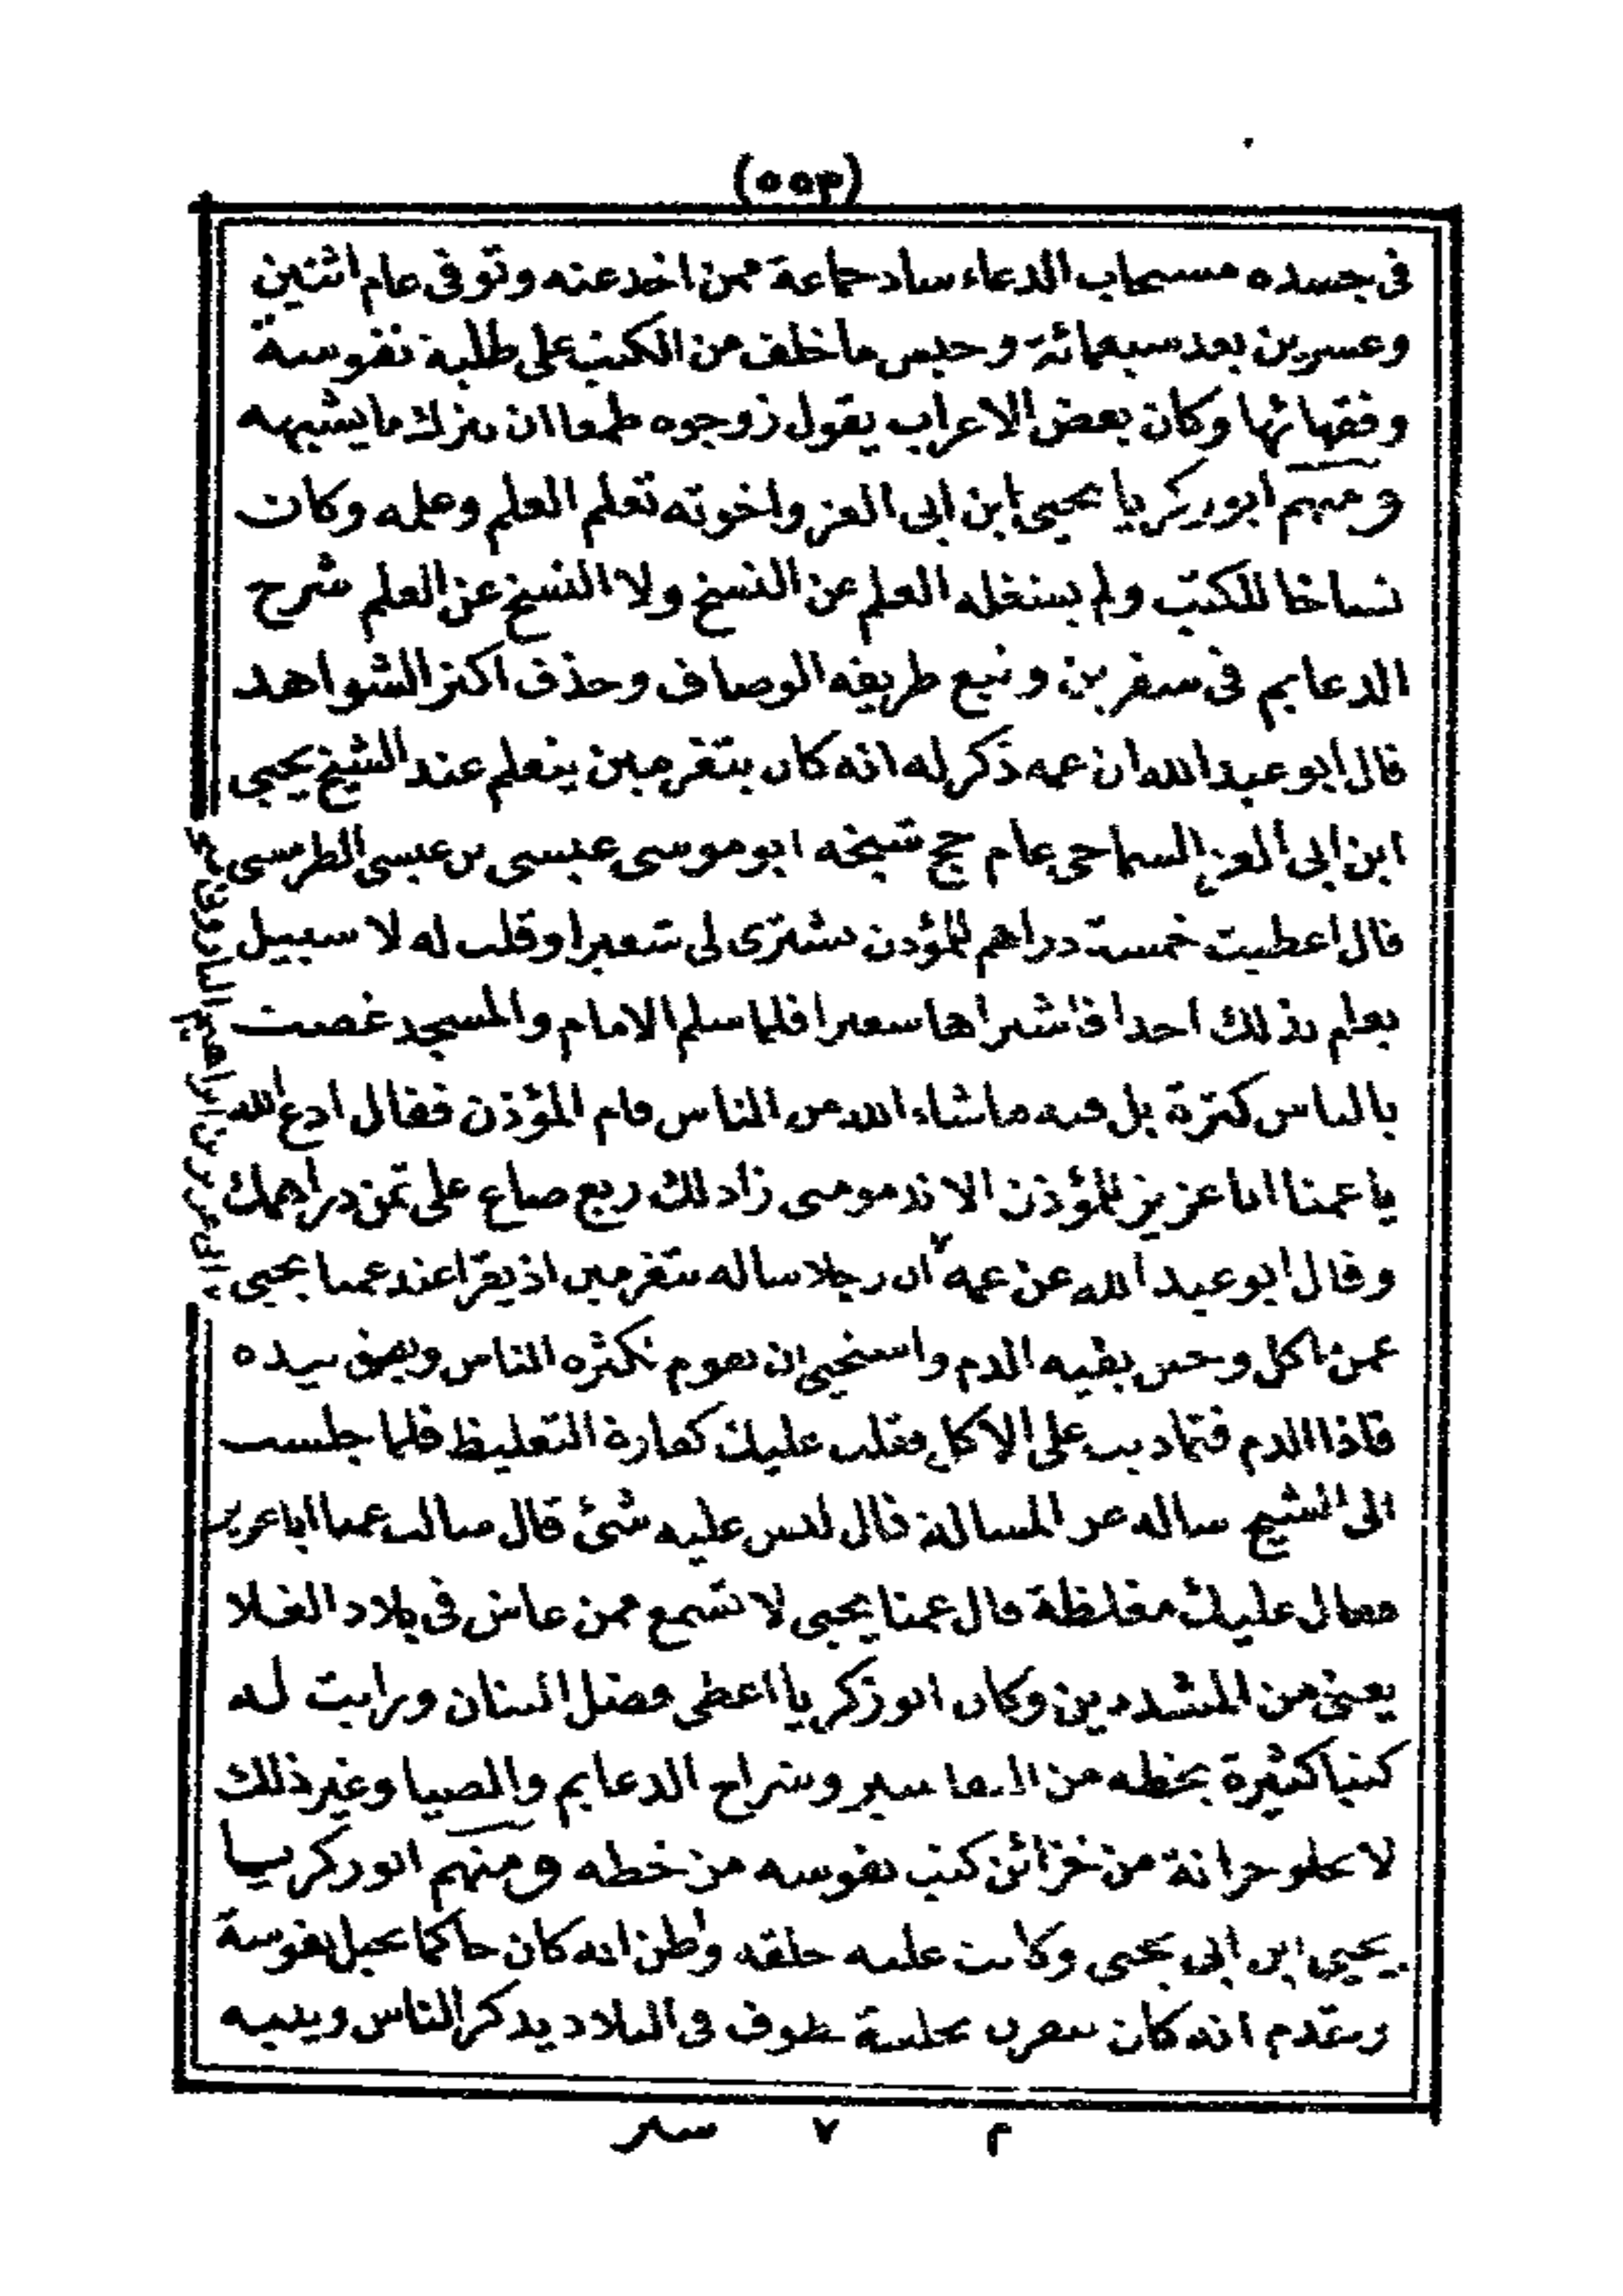 (٥٥٣)
فى جسده مستجاب الدعاء ساد جماعة ممن اخذ عنه وتوفى عام اثنتين
وعشرين بعد سبعمائة وحبس ما خلف من الكتب على طلبة نفوسة
وفقهائها وكان بعض الاعراب يقول زوجوه طمعا ان يترك ما يشبهه
ومنهم ابو زكريا يحيى ابن ابى العز واخوته تعلم العلم وعلمه وكان
نساخا للكتب ولم يشغله العلم عن النسخ ولا النسخ عن العلم شرح
الدعايم فى سفرين وتبع طريقه الوصاف وحذف اكثر الشواهد
قال ابو عبد الله ان عمه ذكر له انه كان بتغرمين يتعلم عند الشيخ يحيى
ابن ابى العز السماحى عام حج شيخه ابو موسى عيسى بن عيسى الطرمسى
قال اعطيت خمسة دراهم للمؤذن يشترى لى شعيرا وقلت له لا سبيل
يعلم بذلك احدا فاشتراها شعيرا فلما سلم الامام والمسجد غصت
بالناس كثرة بل فيه ما شاء الله من الناس قام المؤذن فقال ادع الله
يا عمنا ابا عزيز للمؤذن الاندمومى زاد لك ربع صاع على ثمن دراهمك
وقال ابو عبد الله عن عمه ان رجلا ساله بتغرمين اذ يقرا عند عمنا يحيى
عمن اكل وحس بفيه الدم واستحيى ان يقوم لكثرة الناس وبصق بيده
فاذا الدم فتماديت على الاكل فقلت عليك كفارة التغليظ فلما جلست
الى الشيخ ساله عن المسالة قال ليس عليه شئ قال سالت عمنا ابا عزيز
فقال عليك مغلظة قال عمنا يحيى لا تسمع ممن عاش فى بلاد الفلا
يعنى من المشددين وكان ابو زكريا اعطى فضل البنان ورايت له
كتبا كثيرة بخطه من التفاسير وشراح الدعايم والضيا وغير ذلك
لا تخلو خزانة من خزائن كتب نفوسه من خطه ومنهم ابو زكريا
يحيى ابن ابى يحيى وكانت عليه حلقه واظن انه كان حاكما بجبل نفوسة
وتقدم انه كان بحلقة يطوف فى البلاد يذكر الناس وينبه
م ٧ سير